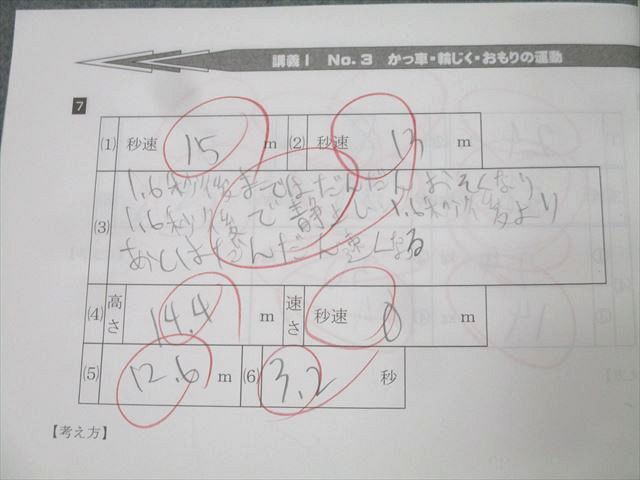 講義1 No.3 かっ車・輪じく・おもりの運動
7
(1) 秒速 15 m (2) 秒速 13 m
(3) 1.6秒後まではだんだんおそくなり
1.6秒後で静止し、1.6秒後より
あとはだんだん速くなる
(4) 高さ 14.4 m 速さ 秒速 0 m
(5) 12.6 m (6) 3.2 秒
【考え方】